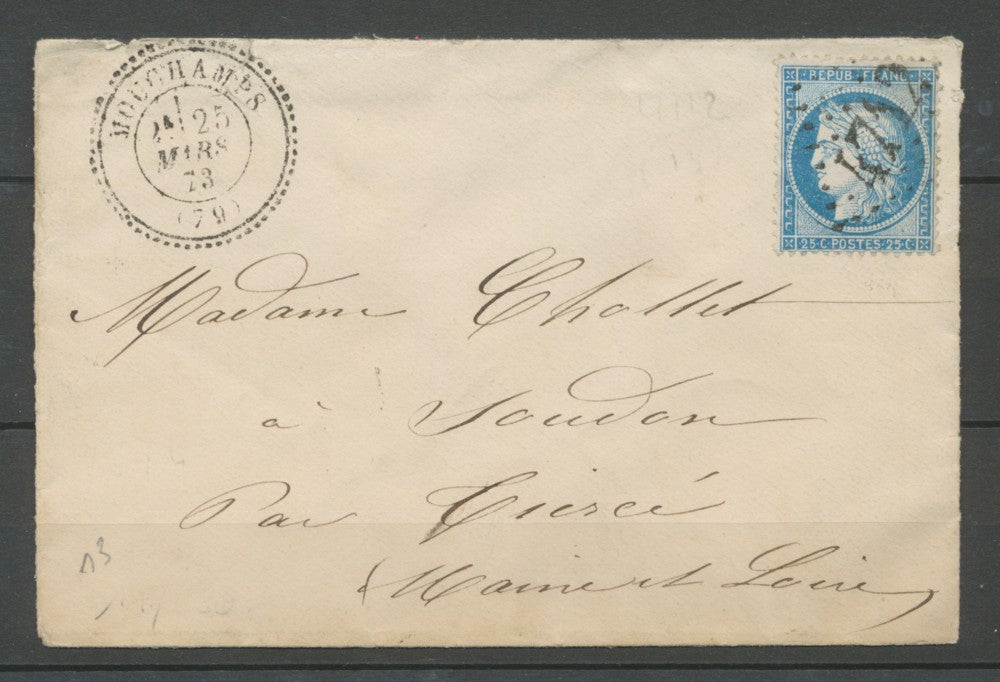 MOUCHAMPS
25
MARS
73
(79)
REPUB·FRANC·
25·C·POSTES·25·C·
Madame Chollet
à Soudon
Par Tiercé
Maine et Loire